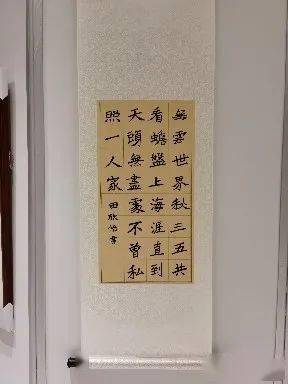 無雲世界秋三五共
看蟾盤上海涯直到
天頭無盡處不曾私
照一人家 田欣怡書